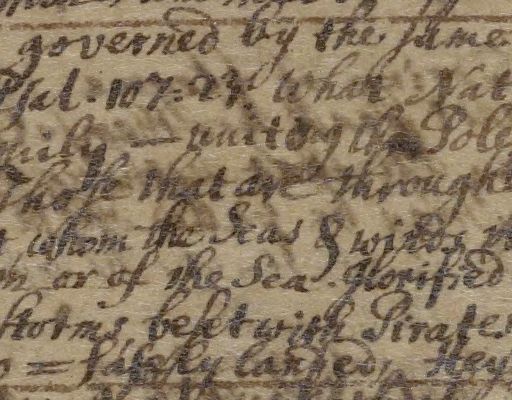 governed by the same
Psal. 107. 23. what Nat
— united the Pole
Those that are through
whom the Seas & winds
or of the Sea. Glorified
storms, beset with Pirates
= safely landed, they